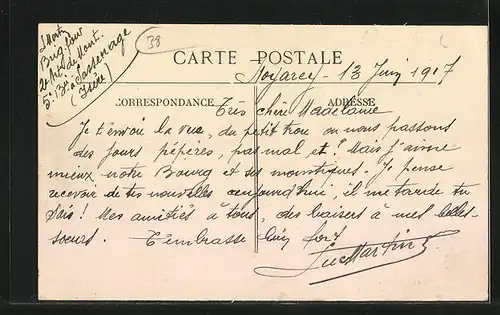 38
CARTE POSTALE
Noyarey - 13 Juin 1917
CORRESPONDANCE
ADRESSE
Très chère Madelaine
Je t'envoi la vue, du petit trou où nous passons
des jours pépères, pas mal et? Mais j'aime
mieux notre Bourg et ses moustiques. Je pense
recevoir de tes nouvelles aujourd'hui, il me tarde tu
sais! Mes amitiés à tous, des baisers à mes belles-
soeurs. T'embrasse bien fort
Luc Martin
Brig. four
de Mont.
5e Bie à Sassenage
(Isère)